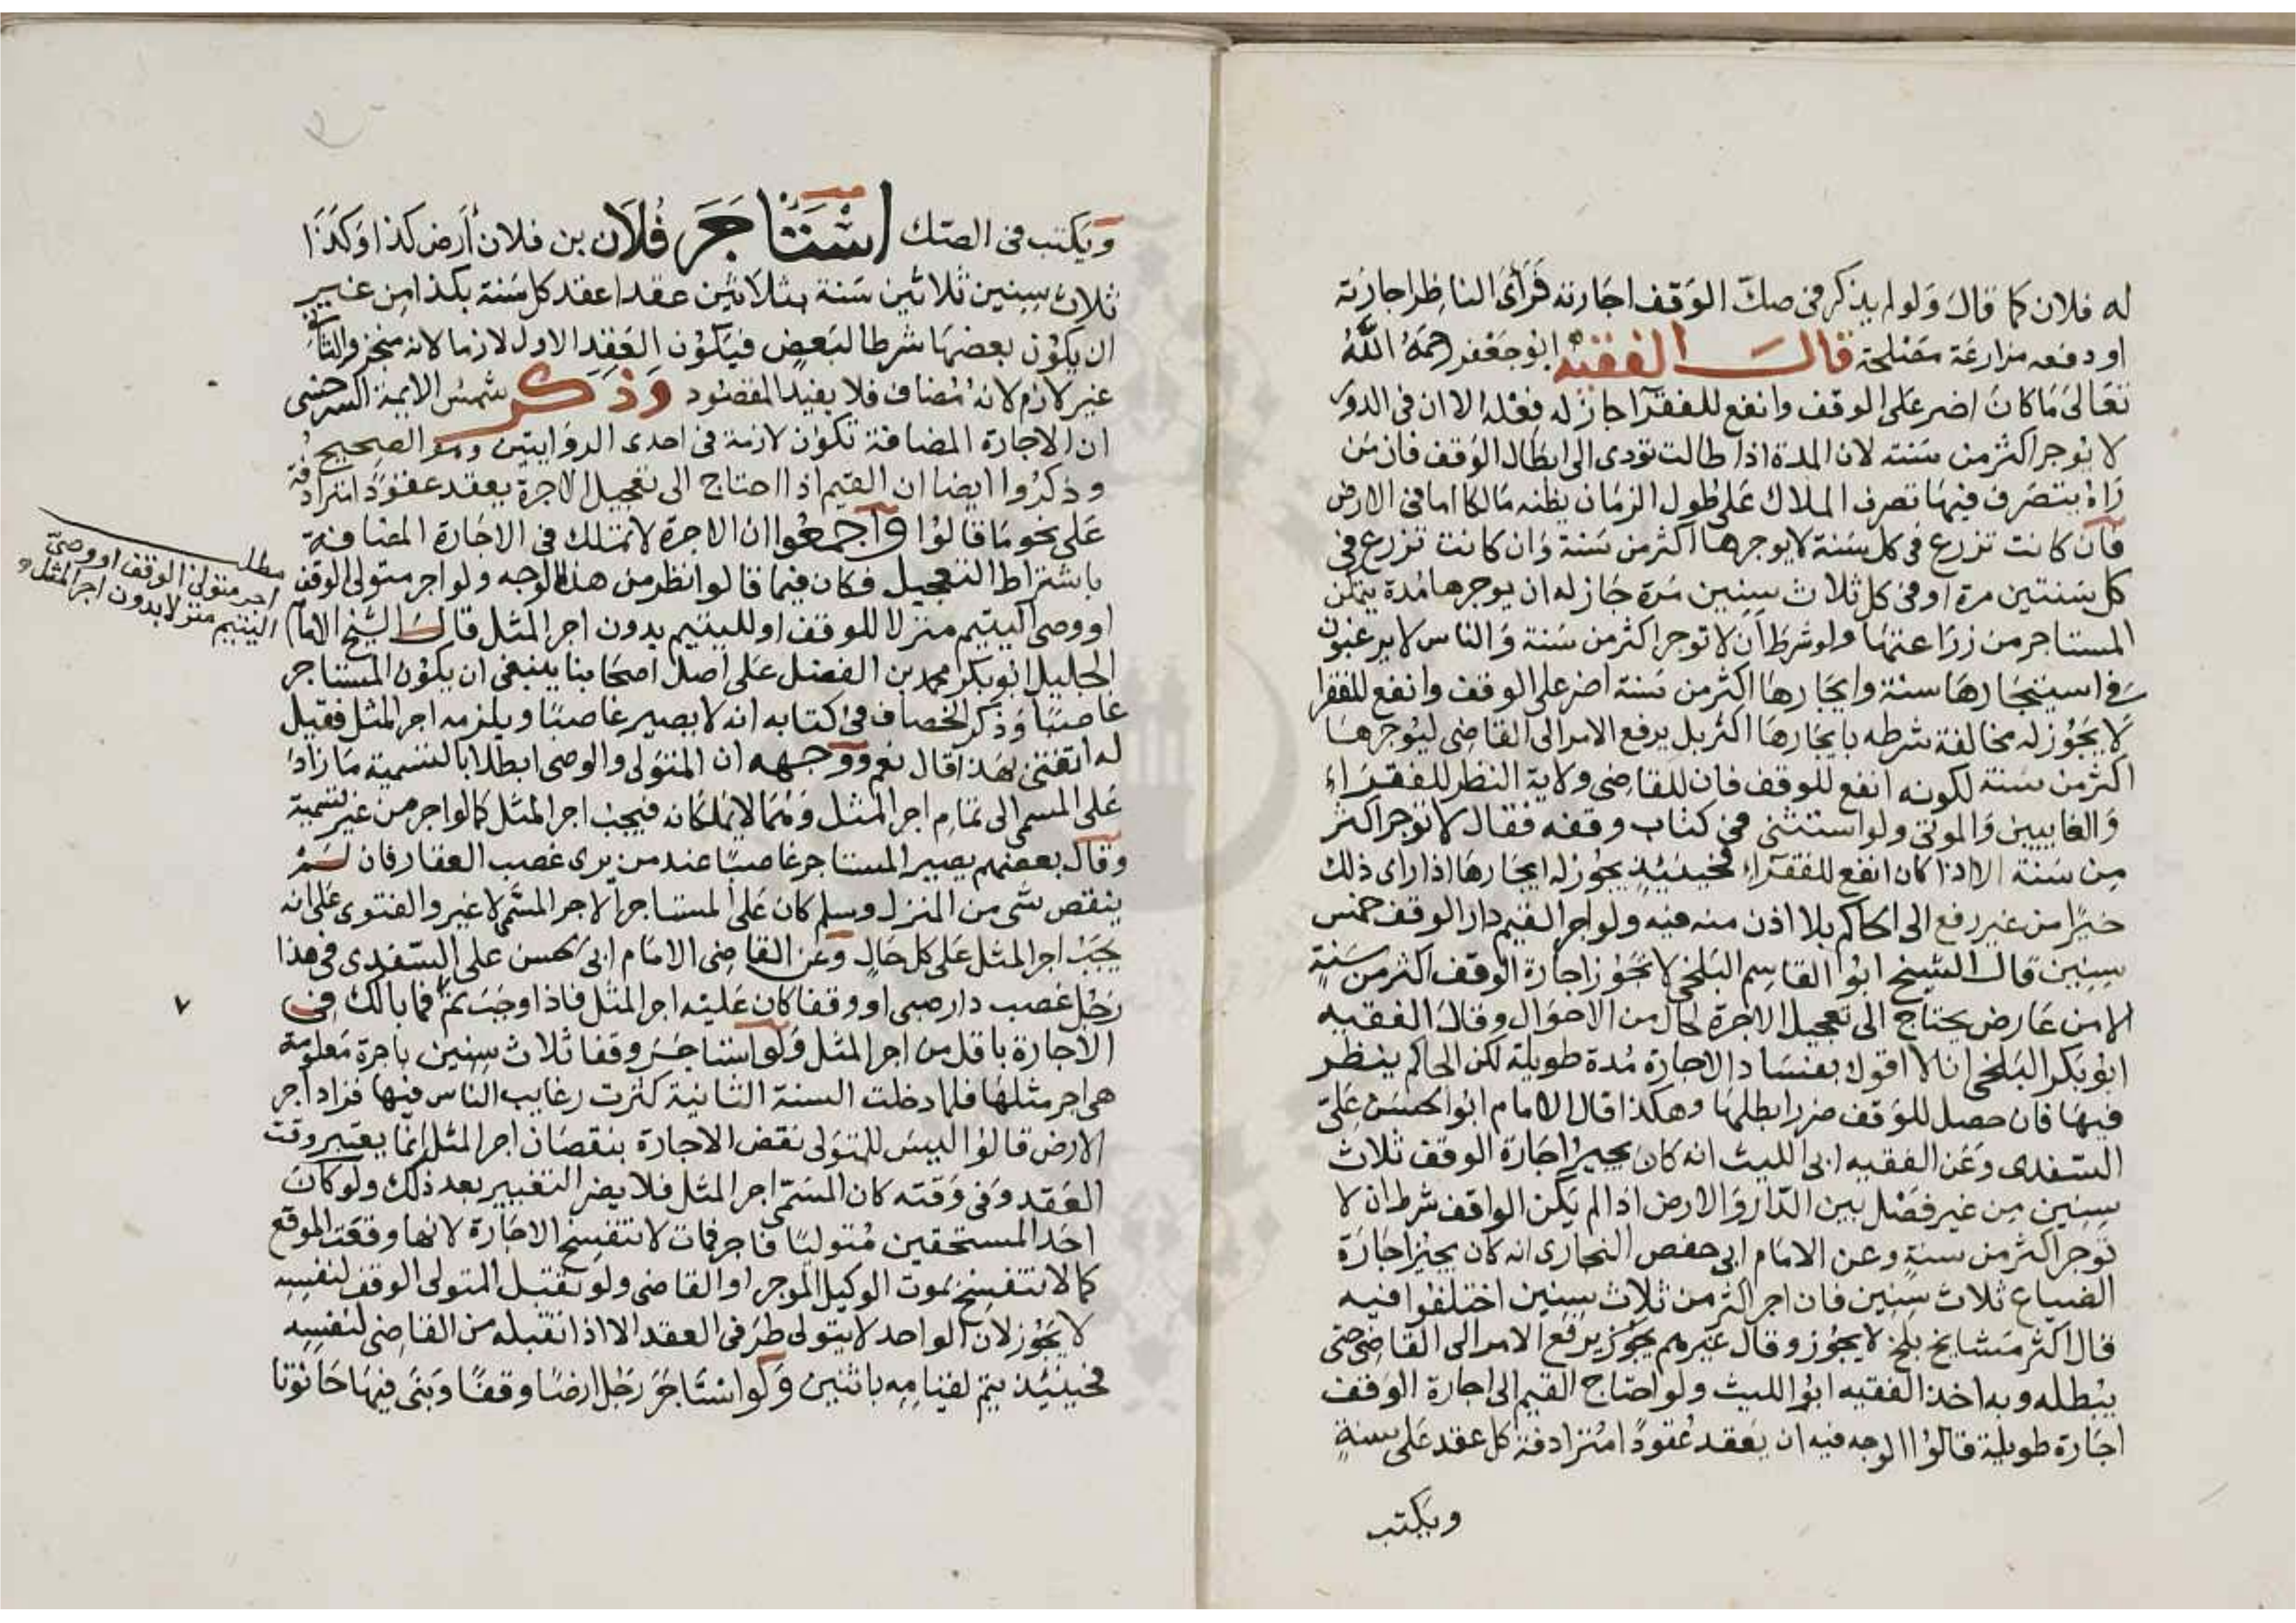 له فلان كما قال ولو لم يذكر فى صك الوقف اجارته فرأى الناظر اجارته
او دفعه مزارعة مصلحة قال الفقيه ابو جعفر رحمه الله
تعالى ما كان اضر على الوقف وانفع للفقرآ جاز له فعله الا ان فى الدور
لا يوجر اكثر من سنة لان المدة اذا طالت تودى الى ابطال الوقف فان من
رآه يتصرف فيها تصرف الملاك على طول الزمان يظنه مالكا اما فى الارض
فان كانت تزرع فى كل سنة لا يوجرها اكثر من سنة وان كانت تزرع فى
كل سنتين مرة او فى كل ثلاث سنين مرة جاز له ان يوجرها مدة يتمكن
المستاجر من زراعتها ولو شرط ان لا توجر اكثر من سنة والناس لا يرغبون
فى استيجارها سنة وايجارها اكثر من سنة اضر على الوقف وانفع للفقرا
لا يجوز له مخالفة شرطه بايجارها اكثر بل يرفع الامر الى القاضى ليوجرها
اكثر من سنة لكونه انفع للوقف فان للقاضى ولاية النظر للفقراء
والغايبين والموتى ولو استثنى فى كتاب وقفه فقال لا توجر اكثر
من سنة الا اذا كان انفع للفقرآء فحينئذ يجوز له ايجارها اذا راى ذلك
خيرا من غير رفع الى الحاكم بلا اذن منه فيه ولو اجر القيم دار الوقف خمس
سنين قال الشيخ ابوا القاسم البلخى لا تجوز اجارة الوقف اكثر من سنة
الا من عارض يحتاج الى تعجيل الاجرة بحال من الاحوال وقال الفقيه
ابو بكر البلخى انا لا اقول بفساد الاجارة مدة طويلة لكن الحاكم ينظر
فيها فان حصل للوقف ضرر ابطلها وهكذا قال الامام ابوا الحسن على
السغدى وعن الفقيه ابى الليث انه كان يجيز اجارة الوقف ثلاث
سنين من غير فصل بين الدار والارض اذا لم يكن الواقف شرط ان لا
توجر اكثر من سنة وعن الامام ابى حفص البخارى انه كان يجيز اجارة
الضياع ثلاث سنين فان اجر اكثر من ثلاث سنين اختلفوا فيه
قال اكثر مشايخ بلخ لا يجوز وقال غيرهم يجوز يرفع الامر الى القاضى حتى
يبطله وبه اخذ الفقيه ابوا الليث ولو احتاج القيم الى اجارة الوقف
اجارة طويلة قالوا الوجه فيه ان يعقد عقودا مترادفة كل عقد على سنة
ويكتب
ويكتب فى الصك استاجر فلان بن فلان أرض كذا وكذا
ثلاث سنين ثلاثين سنة بثلاثين عقدا عقد كل سنة بكذا من غير
ان يكون بعضها شرطا لبعض فيكون العقد الاول لازما لانه منجز والثانى
غير لازم لانه مضاف فلا يفيد المقصود وذكر شمس الايمة السرخسى
ان الاجارة المضافة تكون لازمة فى احدى الروايتين وهو الصحيح
وذكروا ايضا ان القيم اذا احتاج الى تعجيل الاجرة يعقد عقودا مترادفة
على نحو ما قالوا واجمعوا ان الاجرة لا تملك فى الاجارة المضافة
باشتراط التعجيل فكان فيما قالوا نظر من هذا الوجه ولو اجر متولى الوقف
او وصى اليتيم منزلا للوقف او لليتيم بدون اجر المثل قال الشيخ الامام
الجليل ابو بكر محمد بن الفضل على اصل اصحابنا ينبغى ان يكون المستاجر
غاصبا وذكر الخصاف فى كتابه انه لا يصير غاصبا ويلزمه اجر المثل فقيل
له اتفتى بهذا قال نعم ووجهه ان المتولى والوصى ابطلا بالتسمية ما زاد
على المسمى الى تمام اجر المثل وهما لا يملكانه فيجب اجر المثل كما لو اجر من غير تسمية
وقال بعضهم يصير المستاجر غاصبا عند من يرى غصب العقار فان لم
ينقص شى من المنزل وسلم كان على المستاجر الاجر المسمى لا غير والفتوى على انه
يجب اجر المثل على كل حال وعن القاضى الامام ابى الحسن على السغدى فى هذا
رجل غصب دار صبى او وقفا كان عليه اجر المثل فاذا وجب ثم فما بالك فى
الاجارة باقل من اجر المثل ولو استاجر وقفا ثلاث سنين باجرة معلومة
هى اجر مثلها فلما دخلت السنة الثانية كثرت رغايب الناس فيها فزاد اجر
الارض قالوا ليس للمتولى نقض الاجارة بنقصان اجر المثل انما يعتبر وقت
العقد وفى وقته كان المسمى اجر المثل فلا يضر التغيير بعد ذلك ولو كان
احد المستحقين متوليا فاجر فمات لا تنفسخ الاجارة لانها وقعت الموقع
كما لا تنفسخ بموت الوكيل الموجر او القاضى ولو تقبل المتولى الوقف لنفسه
لا يجوز لان الواحد لا يتولى طرفى العقد الا اذا تقبله من القاضى لنفسه
فحينئذ يتم لقيامه باثنين ولو استاجر رجل ارضا وقفا وبنى فيها حانوتا
مطلب
اجر متولى الوقف او وصى
اليتيم منزلا بدون اجر المثل